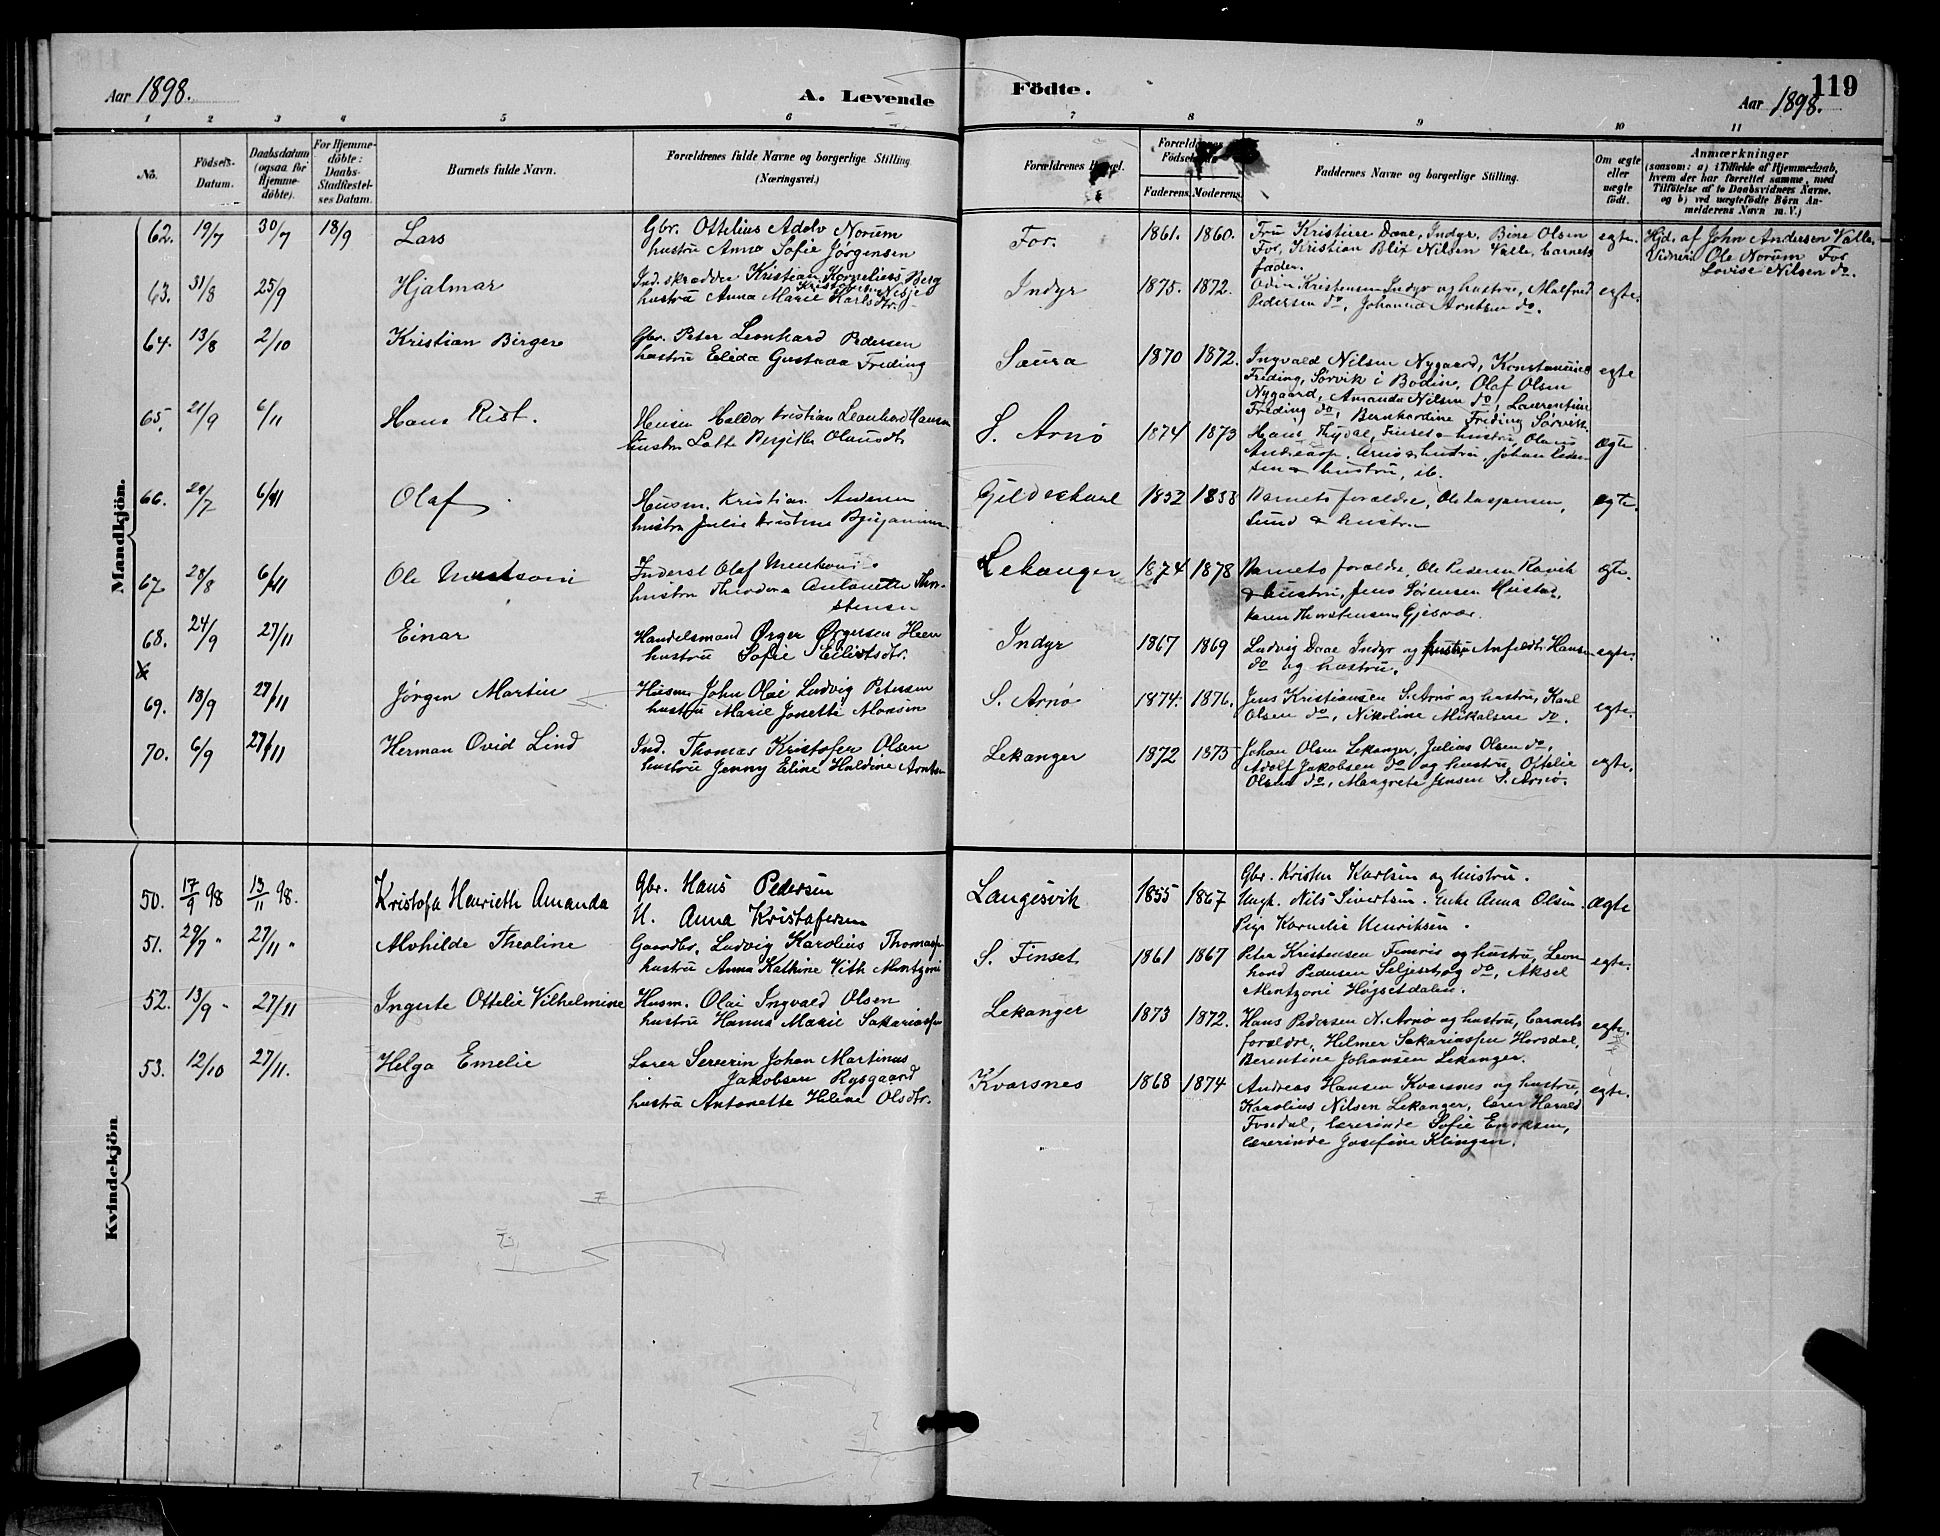 119
Aar 1898.
A. Levende
Födte.
Aar 1898.
1 2 3 4 5 6 7 8 9 10 11
No.
Födsels-Datum.
Daabsdatum (ogsaa for Hjemmedöbte).
For Hjemmedöbte: Daabs-Stadfæstelses Datum.
Barnets fulde Navn.
Forældrenes fulde Navne og borgerlige Stilling. (Næringsvei.)
Forældrenes
Forældrenes
Faderens. Moderens.
Faddernes Navne og borgerlige Stilling.
Om ægte eller uægte födt.
Anmærkninger
(saasom: a) i Tilfælde af Hjemmedaab,
hvem der har forrettet samme, med
Tilföielse af to Daabsvidners Navne,
og b) ved uægtefödte Börn An-
melderens Navn m. V.)
Mandkjön.
62. 19/7 30/7 18/9 Lars
Gbr. Ottelius Adolv Norum
hustru Anna Sofie Jørgensen
For. 1861. 1860.
Fru Kristine Daae, Indyr, Bine Olsen
For, Kristian Blix Nilsen Valle, barnets
fader.
egte.
Hjd. af John Andersen Valle.
Vidner: Ole Norum For
Lovise Nilsen do.
63. 31/8 25/9 Hjalmar
Ind. skrædder Kristian Kornelius Berg
hustru Anna Marie Karlsdtr.
Indyr 1875. 1872.
Odin Kristensen Indyr og hustru, Malfred
Pedersen do, Johanna Arntsen do.
egte.
64. 13/8 2/10 Kristian Birger
Gbr. Peter Leonhard Pedersen
hustru Elida Gustava Freding
Saura 1870 1872.
Ingvald Nilsen Nygaard, Konstanciné
Freding, Sørvik i Bodine, Olaf Olsen
Nygaard, Amanda Nilsen do, Laurentine
Freding do, Bernhardine Freding Sørvik.
egte
65. 21/9 6/11 Hans Rist.
Kristian Leonhard Hansen
hustru Bergitte Olausdtr
S. Arnö 1874 1873
Hans Thydal, Finset & hustru, Olaus
Andreasp, Arnö & hustru, Johan Peder-
sen & hustru, ib.
ægte
66. 29/7 6/11 Olaf
Husm. Kristian Andersen
hustru Julie Kristine
Gildeskaal 1852 1858
Barnets forældre, Ole
Sund & hustru
ægte.
67. 28/8 6/11 Ole
Inderst Olaf
hustru Theodora Antonette Thor-
stensen
Lekanger 1874 1878
Barnets forældre, Ole Pedersen Ravik
& hustru, Jens Sørensen Hustad,
Karen Thorstensen Gjesvær.
ægte.
68. 24/9 27/11 Einar
Handelsmand Ørger Ørgersen Heen
hustru Sofie Eliotsdtr.
Indyr 1867 1869
Ludvig Daae Indyr og hustru Anfeldt Hansen
do og hustru.
egte.
69. 18/9 27/11 Jørgen Martin
Husm. John Olai Ludvig Petersen
hustru Marie Jonette Monsen
S. Arnø 1874. 1876.
Jens Kristiansen S. Arnø og hustru, Karl
Olsen do, Nikoline Mikalsen do.
egte.
70. 6/9 27/11 Herman Ovid Lind
Ind. Thomas Kristofer Olsen
hustru Jenny Eline Haldine Arntsen
Lekanger 1872 1875
Johan Olsen Lekanger, Julius Olsen do,
Adolf Jakobsen do og hustru, Ottelie
Olsen do, Margrete Jensen S. Arnø.
egte.
Kvindekjön
50. 17/9 98 13/11 98. Kristofa Henriette Amanda
Gbr. Hans Pedersen
H. Anna Kristofersen
Langesvik 1855 1867
Gbr. Krister Karlsen og hustru.
Ungk. Nils Sivertsen. Enke Anna Olsen.
Pige Kornelie Henriksen.
ægte
51. 29/7 " 27/11 " Alvhilde Thealine
Gaardbr. Ludvig Karolius Thomassen
hustru Anna Kathine Vith Mentzoni
S. Finset 1861 1867
Peter Kristensen Finnvis og hustru, Leon
hard Pedersen Seljeset og do, Aksel
Mentzoni Højsetdalen.
egte.
52. 13/9 " 27/11 Ingute Ottelie Vilhelmine
Husm. Olai Ingvald Olsen
hustru Hanna Marie Sakariassen
Lekanger 1873 1872.
Hans Pedersen N. Arnø og hustru, barnets
forældre, Helmer Sakariassen Horsdal,
Berentine Johansen Lekanger.
egte.
53. 12/10 27/11. Helga Emelie
Lærer Severin Johan Martinus
Jakobsen Rysgaard
hustru Antonette Heline Olsdtr.
Kvarsnes 1868 1874
Andreas Hansen Kvarsnes og hustru,
Karolius Nilsen Lekanger, lærer Harald
Fosdal, lærerinde Sofie Eriksen,
lærerinde Josefine Klingen.
egte.